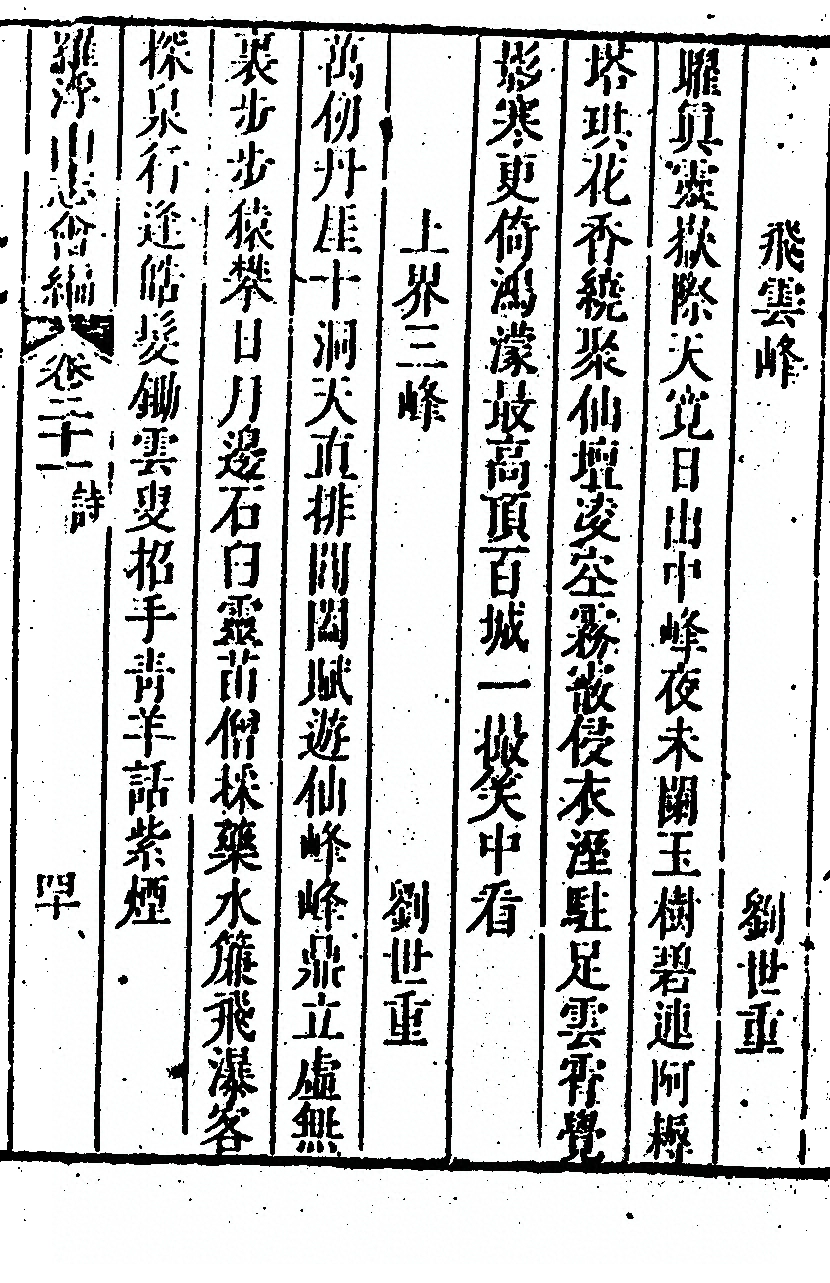 飛雲峰　劉世重
耀眞靈嶽際天寛日出中峰夜未闌玉樹碧連阿耨
塔琪花香繞聚仙壇凌空霧散侵衣溼駐足雲霄覺
影寒更倚鴻濛最高頂百城一撮笑中看
上界三峰　劉世重
萬仞丹崖十洞天直排閶闔賦遊仙峰峰鼎立虛無
裏步步猿攀日月邊石臼靈苗僧採藥水簾飛瀑客
探泉行逢皓髮鋤雲叟招手靑羊話紫煙
羅浮山志會編　卷二十一　詩　罕